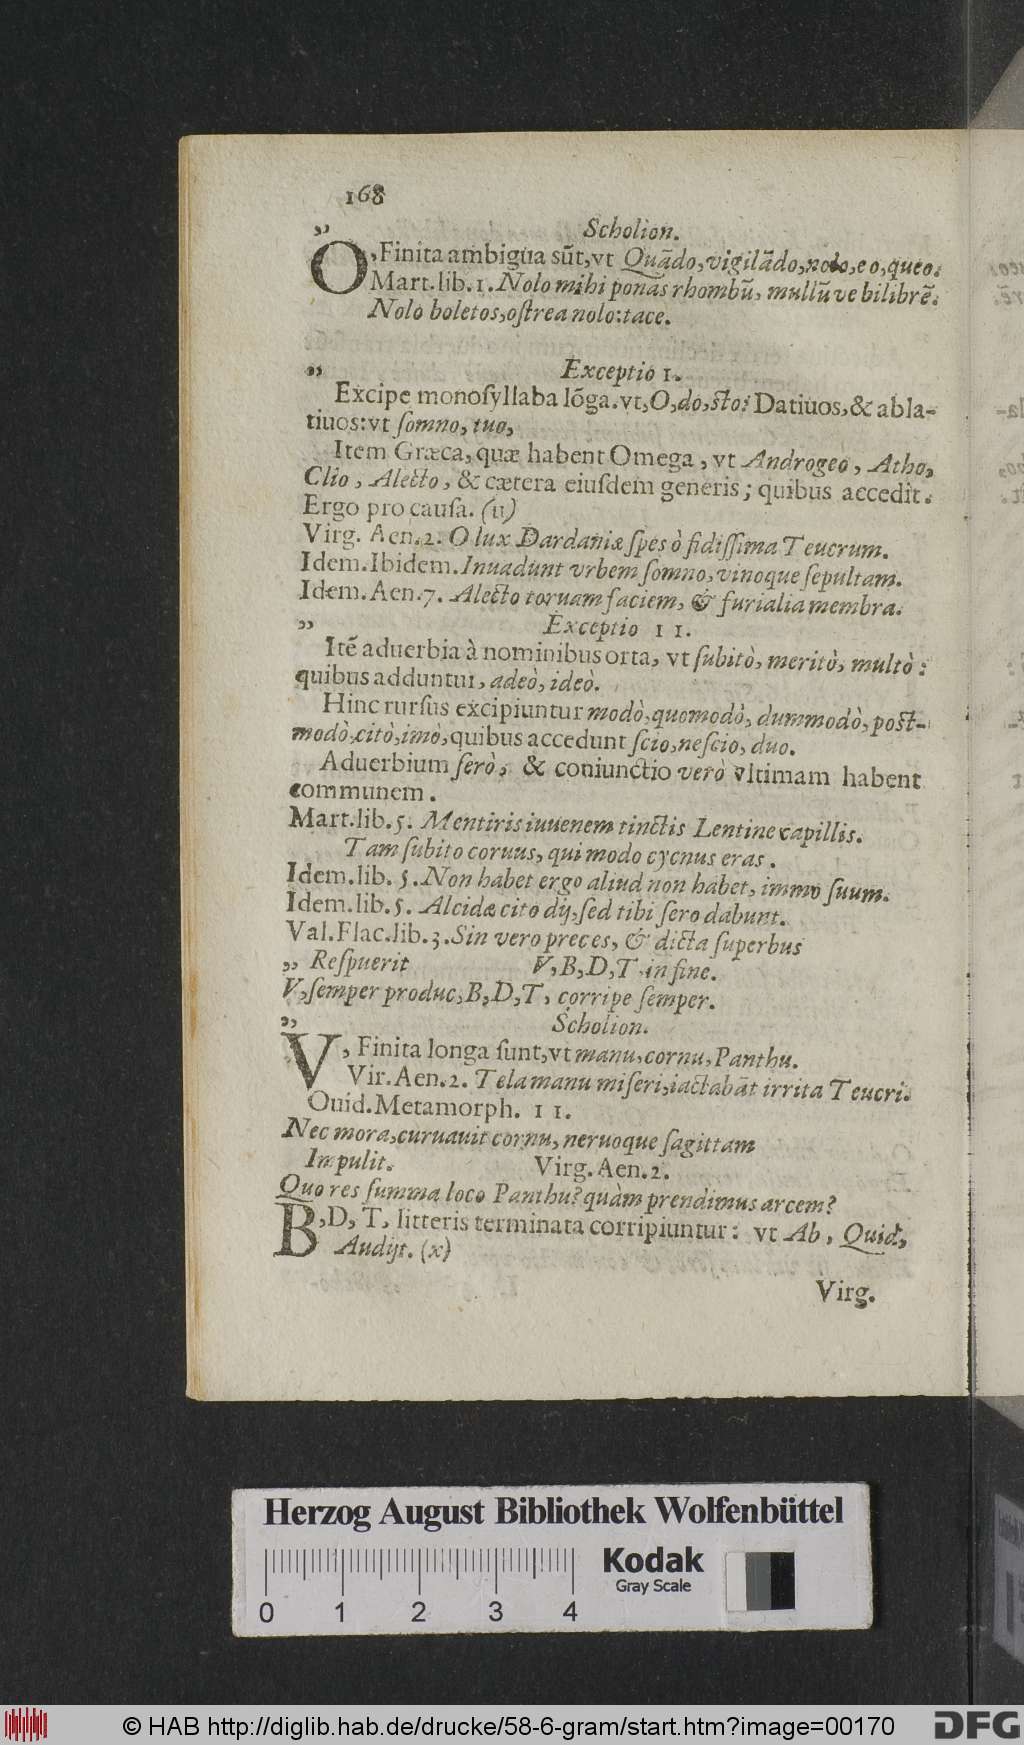 168
Scholion.
„
O, Finita ambigua sūt, vt Quādo, vigilādo, nolo, eo, queo.
Mart. lib. 1. Nolo mihi ponas rhombū, mullū ve bilibrē.
Nolo boletos, ostrea nolo: tace.
„ Exceptio 1.
Excipe monosyllaba lōga. vt, O, do, sto: Datiuos, & abla-
tiuos: vt somno, tuo,
Item Græca, quæ habent Omega, vt Androgeo, Atho,
Clio, Alecto, & cætera eiusdem generis; quibus accedit.
Ergo pro causa. (u)
Virg. Aen. 2. O lux Dardaniæ spes ò fidissima Teucrum.
Idem. Ibidem. Inuadunt vrbem somno, vinoque sepultam.
Idem. Aen. 7. Alecto toruam faciem, & furialia membra.
„ Exceptio 11.
Itē aduerbia à nominibus orta, vt subitò, meritò, multò:
quibus adduntur, adeò, ideò.
Hinc rursus excipiuntur modò, quomodò, dummodò, post-
modò, citò, imò, quibus accedunt scio, nescio, duo.
Aduerbium serò, & coniunctio verò vltimam habent
communem.
Mart. lib. 5. Mentiris iuuenem tinctis Lentine capillis.
Tam subito coruus, qui modo cycnus eras.
Idem. lib. 5. Non habet ergo aliud non habet, immo suum.
Idem. lib. 5. Alcidæ cito dij, sed tibi sero dabunt.
Val. Flac. lib. 3. Sin vero preces, & dicta superbus
„ Respuerit V, B, D, T in fine.
V, semper produc, B, D, T, corripe semper.
„ Scholion.
V, Finita longa sunt, vt manu, cornu, Panthu.
Vir. Aen. 2. Tela manu miseri, iactabāt irrita Teucri.
Ouid. Metamorph. 11.
Nec mora, curuauit cornu, neruoque sagittam
Impulit. Virg. Aen. 2.
Quo res summa loco Panthu? quàm prendimus arcem?
B, D, T, litteris terminata corripiuntur: vt Ab, Quid,
Audijt. (x)
Virg.
Herzog August Bibliothek Wolfenbüttel
Kodak
Gray Scale
0 1 2 3 4
© HAB http://diglib.hab.de/drucke/58-6-gram/start.htm?image=00170
DFG